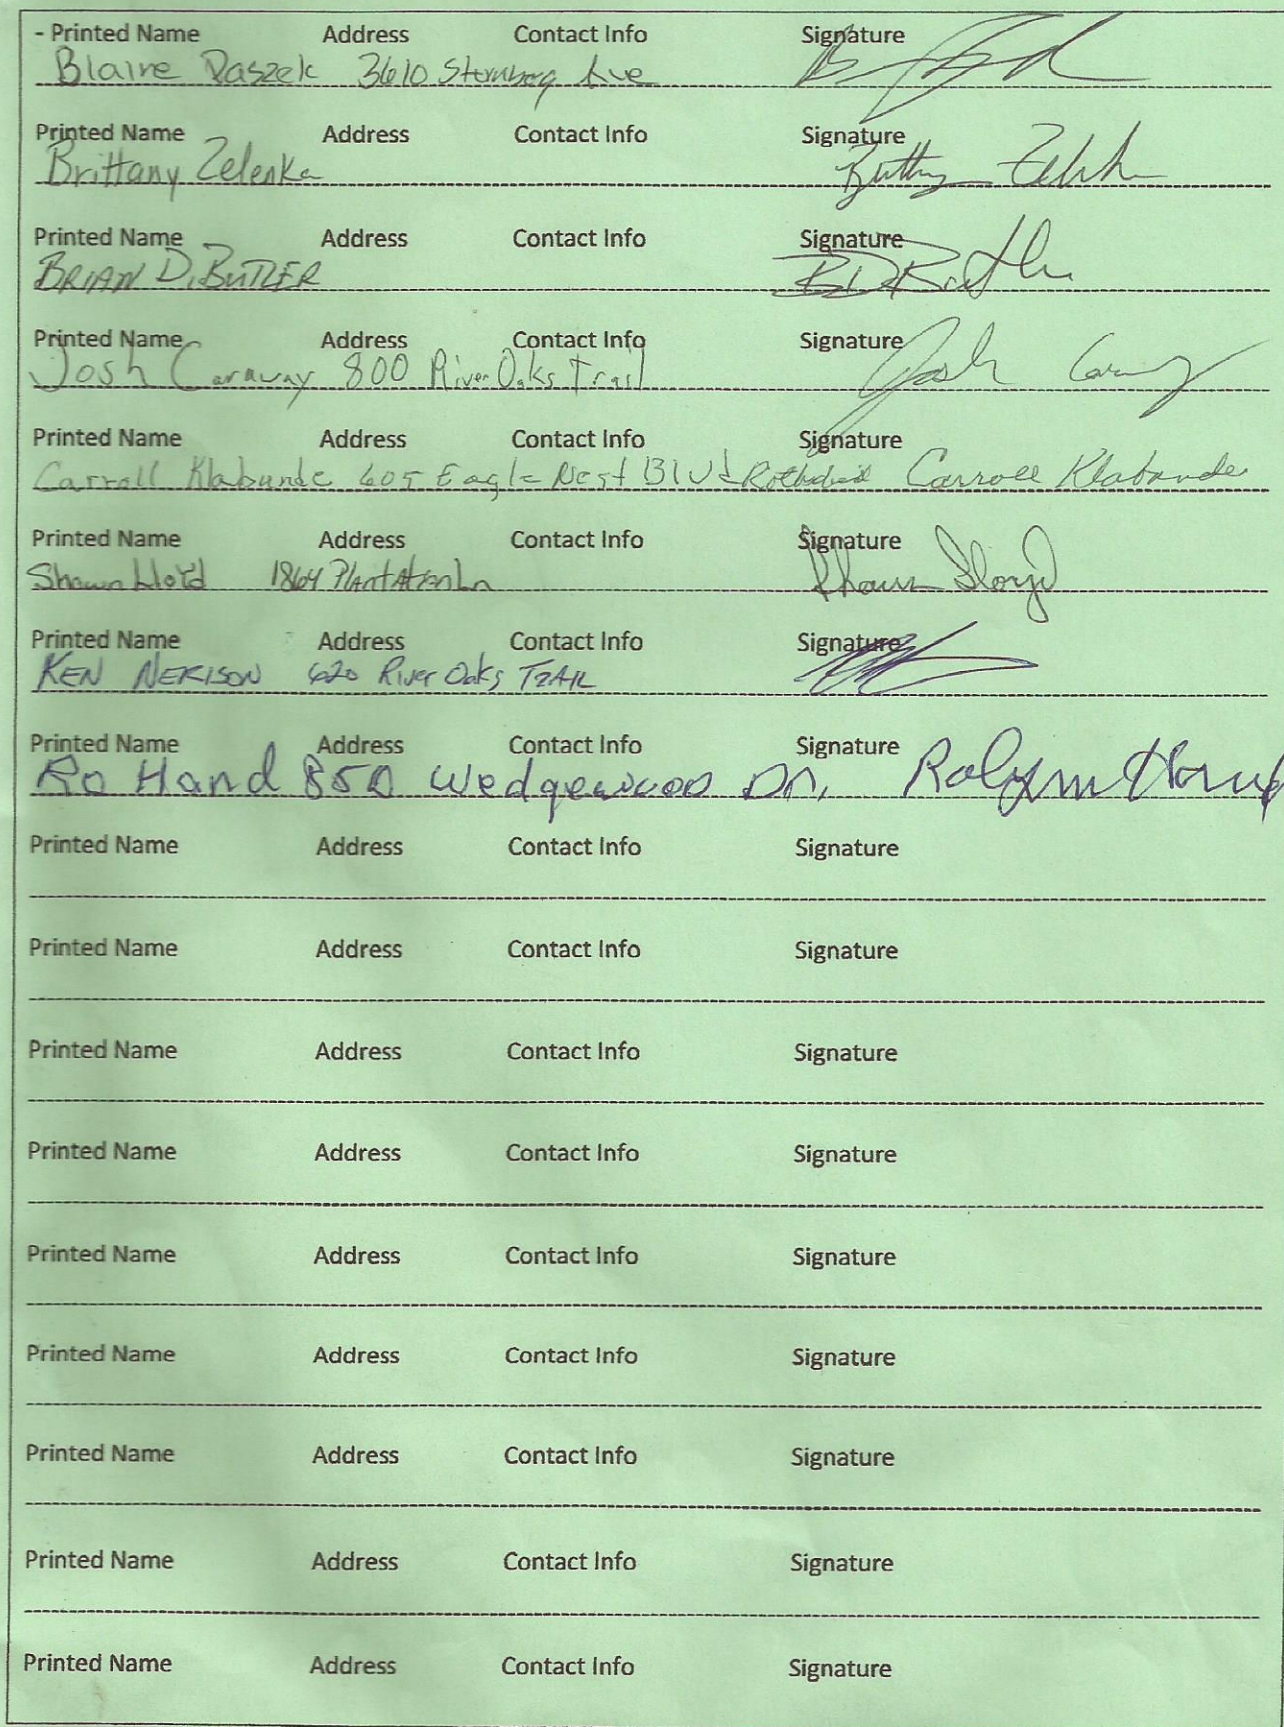 - Printed Name Address Contact Info Signature
Blaine Raszek 3610 Sternberg Ave
Printed Name Address Contact Info Signature
Brittany Zelenka
Printed Name Address Contact Info Signature
BRIAN D. BUTLER
Printed Name Address Contact Info Signature
Josh Caraway 800 River Oaks Trail Josh
Printed Name Address Contact Info Signature
Carroll Klabunde 605 Eagle Nest Blvd Carroll Klabunde
Printed Name Address Contact Info Signature
Shawn Lloyd 1864 Plantation Ln Shawn Lloyd
Printed Name Address Contact Info Signature
KEN NERISON 620 River Oaks TRAIL
Printed Name Address Contact Info Signature
Ro Hand 850 Wedgewood Dr. Rolynn Hand
Printed Name Address Contact Info Signature
Printed Name Address Contact Info Signature
Printed Name Address Contact Info Signature
Printed Name Address Contact Info Signature
Printed Name Address Contact Info Signature
Printed Name Address Contact Info Signature
Printed Name Address Contact Info Signature
Printed Name Address Contact Info Signature
Printed Name Address Contact Info Signature